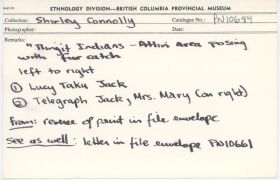 ETHNOLOGY DIVISION—BRITISH COLUMBIA PROVINCIAL MUSEUM
Collection: Shirley Connolly Catalogue No.: PN10684
Photographer: Date:
Remarks:
"Tlingit Indians - Atlin Area posing
with fur catch
left to right
① Lucy Taku Jack
② Telegraph Jack, Mrs. Mary (on right)
From: reverse of print in file envelope
See as well: letter in file envelope PN10661